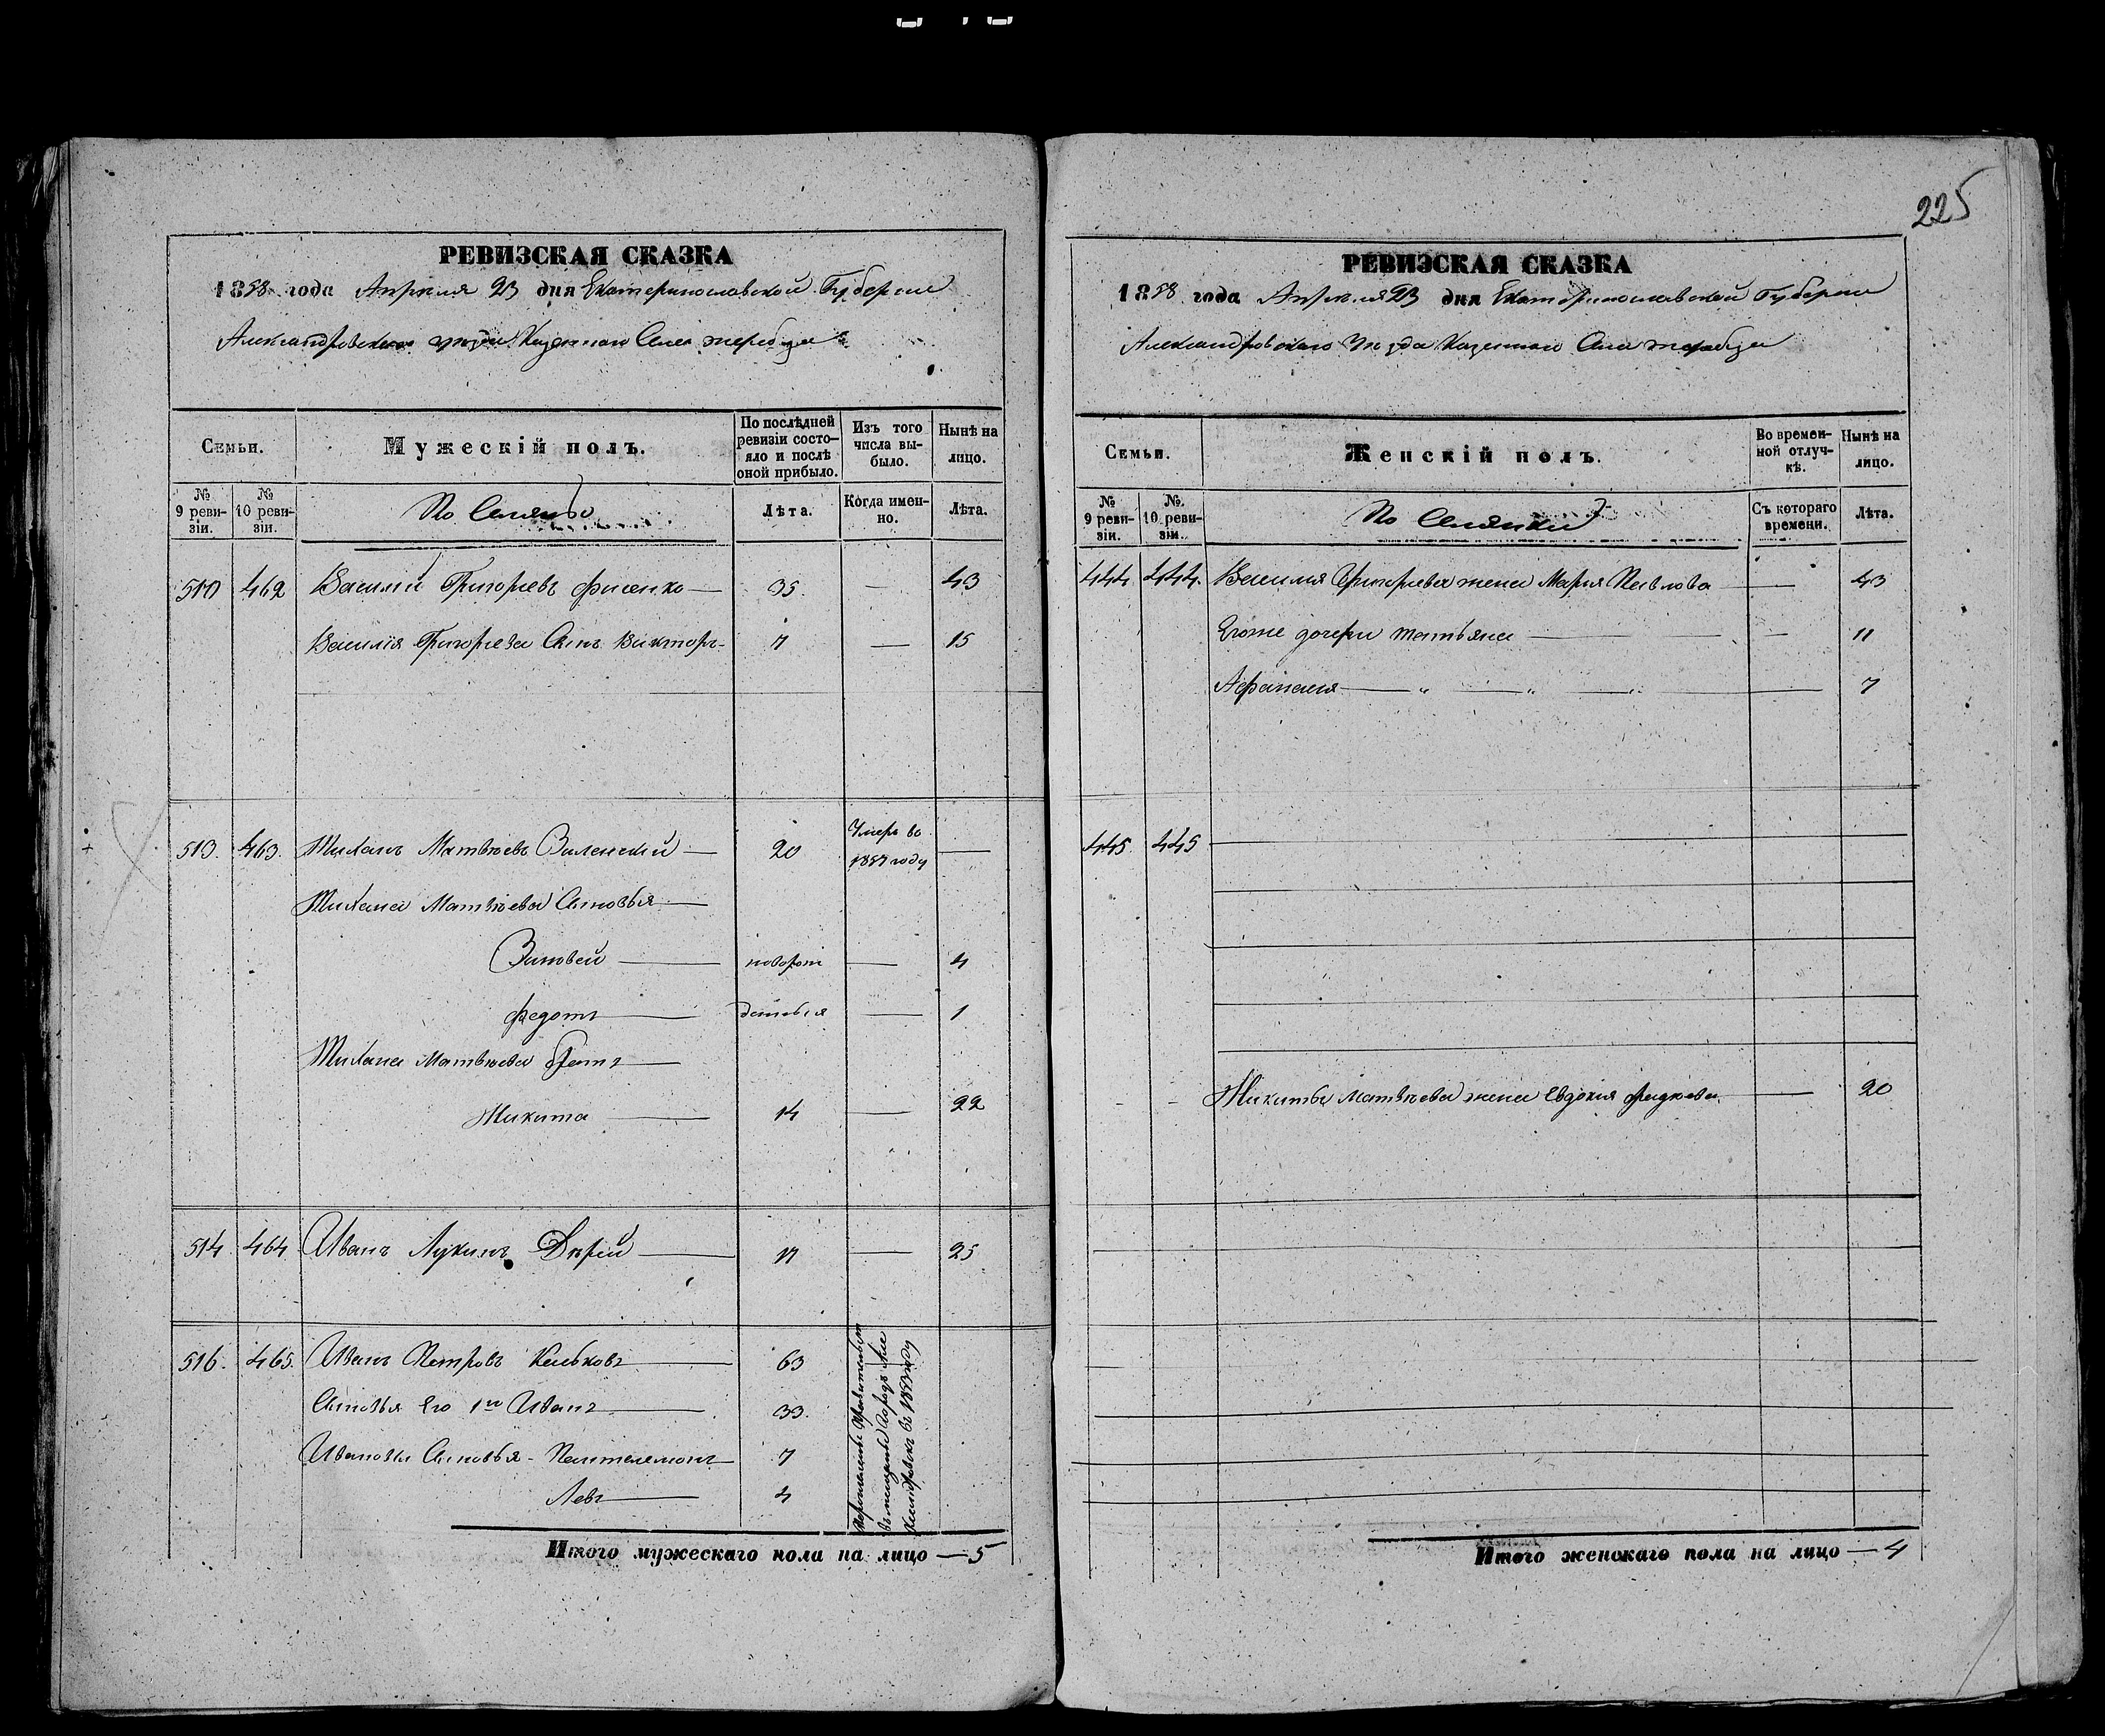 225
РЕВИЗСКАЯ СКАЗКА
1858 года Апреля 23 дня Екатеринославской Губернии
Александровского уезда Казенного Села Жеребца
Семьи.
Мужескій полъ.
По послѣдней ревизіи состояло и послѣ оной прибыло.
Изъ того числа выбыло.
Нынѣ на лицо.
№ 9 ревизіи.
№ 10 ревизіи.
Лѣта.
Когда именно.
Лѣта.
510 462 Василий Григорьевъ Фисенко — 35. — 43
Василія Григорьева Сынъ Викторъ - 7 — 15
513. 463. Тиханъ Матвѣевъ Зиленский — 20 Умеръ во 1857 году —
Тихана Матвѣева Сыновья —
Зиновей — новорож — 4
Федотъ — денныя — 1
Тихана Матвѣева братъ —
Никита — 14 — 22
514 464 Иванъ Лукинъ — 17 — 25
516. 465. Иванъ Петровъ — 63
Сыновья Его 1й Иванъ — 33.
Ивановы Сыновья - Пантелемонъ — 7
Левъ — 4
въ 1853 году
Итого мужескаго пола на лицо — 5
РЕВИЗСКАЯ СКАЗКА
1858 года Апреля 23 дня Екатеринославской Губернии
Александровского Уезда Казенного Села Жеребца
Семьи.
Женскій полъ.
Во временной отлучкѣ.
Нынѣ на лицо.
№ 9 ревизіи.
№. 10 ревизіи.
Съ котораго времени.
Лѣта.
444. 444. Василия Григорьева жена Мария Павлова — 43
Егоже дочери Татьяна — — 11
Афанасия — „ — „ — „ — 7
445. 445
Никиты Матвѣева жена Евдокия — 20
Итого женскаго пола на лицо — 4